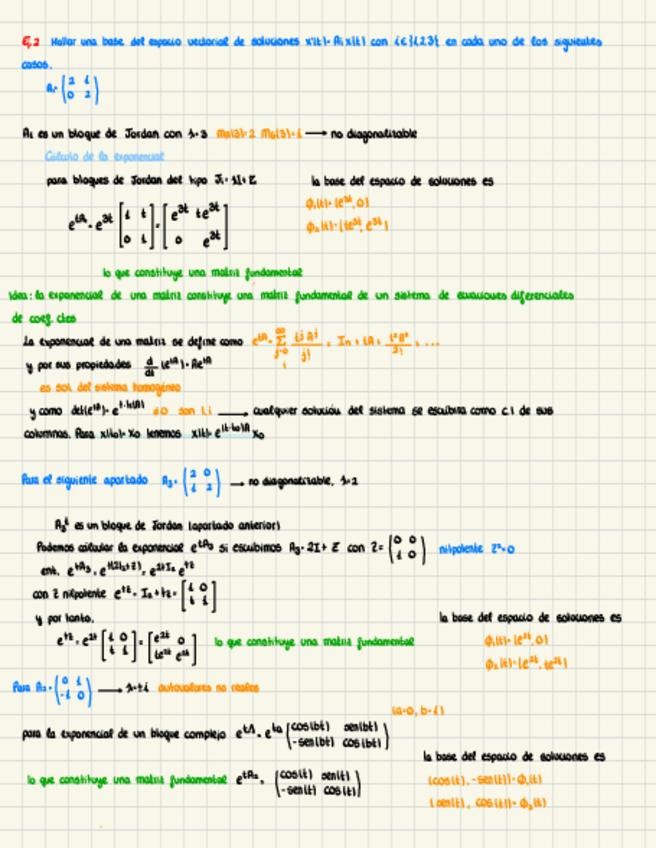 Ej.2 Hallar una base del espacio vectorial de soluciones x'(t)=Aᵢx(t) con i∈{1,2,3} en cada uno de los siguientes
casos.
A₁=(2 1
0 2)
A₁ es un bloque de Jordan con λ=3 → no diagonalizable
Calculo de la exponencial
para bloques de Jordan del tipo la base del espacio de soluciones es
ϕ₁(t)=(e³ᵗ,0)
e^tA = e^3t [1 t = [e^3t te^3t
0 1] 0 e^3t]
ϕ₂(t)=(te³ᵗ, e³ᵗ)
lo que constituye una matriz fundamental
Idea: la exponencial de una matriz constituye una matriz fundamental de un sistema de ecuaciones diferenciales
de coef. ctes
La exponencial de una matriz se define como
y por sus propiedades d/dt (e^tA) = Ae^tA
es sol. del sistema homogéneo
y como ≠0 son l.i → cualquier solución del sistema se escribirá como c.l de sus
columnas. Para x(t₀)=x₀ tenemos x(t)=e^(t-t₀)A x₀
Para el siguiente apartado A₃=(2 0 → no diagonalizable, λ=2
1 2)
es un bloque de Jordan (apartado anterior)
Podemos calcular la exponencial e^tA₃ si escribimos A₃=2I+Z con Z=(0 0 nilpotente Z²=0
1 0)
ent.
con Z nilpotente e^tZ = I₂+tZ = [1 0
t 1]
y por tanto. la base del espacio de soluciones es
e^tZ = e^2t [1 0 = [e^2t 0 lo que constituye una matriz fundamental
t 1] te^2t e^2t]
ϕ₁(t)=(e²ᵗ,0)
ϕ₂(t)=(e²ᵗ, te²ᵗ)
Para A₂=(0 1 → λ=±i autovalores no reales
-1 0)
(a=0, b=1)
para la exponencial de un bloque complejo e^tA = e^ta (cos(bt) sen(bt)
-sen(bt) cos(bt))
la base del espacio de soluciones es
lo que constituye una matriz fundamental e^tA₂ = (cos(t) sen(t)
-sen(t) cos(t))
(cos(t), -sen(t))=ϕ₁(t)
(sen(t), cos(t))=ϕ₂(t)